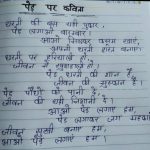 पेड़ पर कविता
धरती की बस यही पुकार,
पेड़ लगाओ बारम्बार।
आओ मिलकर कसम खाएँ,
अपनी धरती हरित बनाएँ।
धरती पर हरियाली हो,
जीवन में खुशहाली हो।
पेड़ धरती की शान है,
जीवन की मुस्कान है।
पेड़ पौधों को पानी दे,
जीवन की यही निशानी दे।
आओ पेड़ लगाएं हम,
पेड़ लगाकर जग
जीवन सुखी बनाएं हम,
आओ पेड़ लगाएं हम।